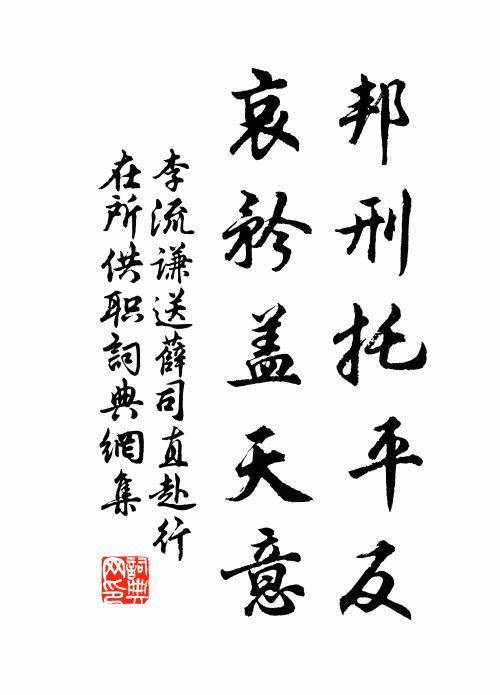 邦刑托平反
哀矜盖天意
李流谦送薛司直赴行
在所供职词典網集
詞典网印